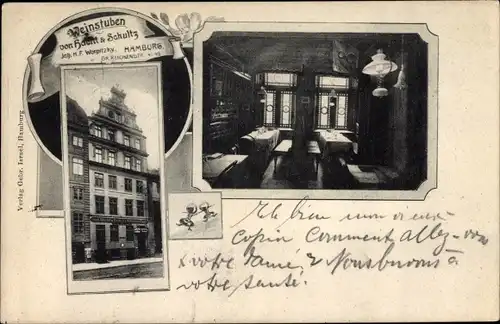 Weinstuben
von Hacht & Schultz
Inh. H. F. Woepitzky, HAMBURG,
GR. REICHENSTR.
Verlag Gebr. Israel, Hamburg
Ich bin
copin Comment allez-vous
votre Samé, & Nousbuvons à
votre santé.